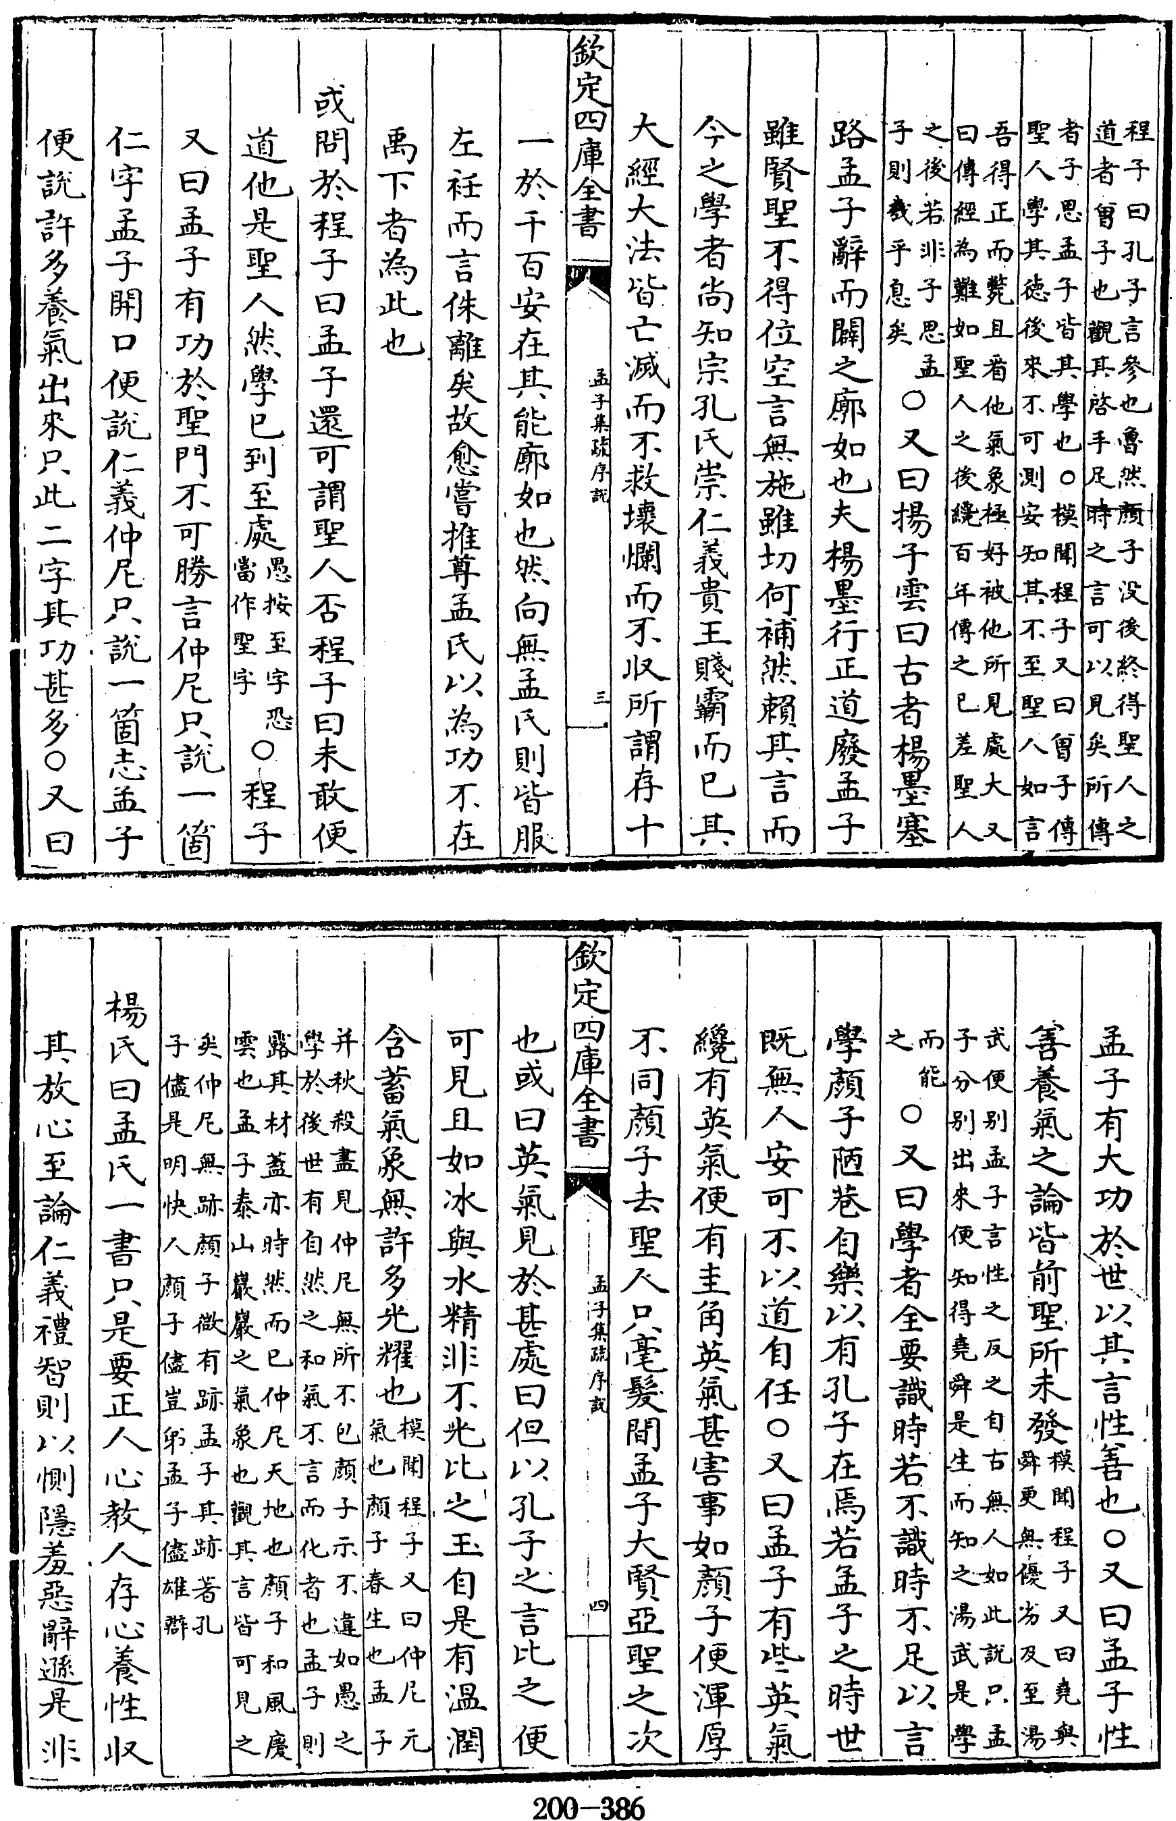 程子曰孔子言參也魯然顔子没後終得聖人之
道者曾子也觀其啓手足時之言可以見矣所傳
者子思孟子皆其學也○模聞程子又曰曾子傳
聖人學其徳後來不可測安知其不至聖人如言
吾得正而斃且看他氣象極好被他所見處大又
曰傳經為難如聖人之後纔百年傳之已差聖人
之後若非子思孟
子則㡬乎息矣○又曰揚子雲曰古者楊墨塞
路孟子辭而闢之廓如也夫楊墨行正道廢孟子
雖賢聖不得位空言無施雖切何補然賴其言而
今之學者尚知宗孔氏崇仁義貴王賤霸而已其
大經大法皆亡滅而不救壞爛而不収所謂存十
欽定四庫全書
孟子集疏序說
三
一於千百安在其能廓如也然向無孟氏則皆服
左衽而言侏離矣故愈嘗推尊孟氏以為功不在
禹下者為此也
或問於程子曰孟子還可謂聖人否程子曰未敢便
道他是聖人然學已到至處愚按至字恐
當作聖字○程子
又曰孟子有功於聖門不可勝言仲尼只說一箇
仁字孟子開口便說仁義仲尼只說一箇志孟子
便說許多養氣出來只此二字其功甚多○又曰
孟子有大功於世以其言性善也○又曰孟子性
善養氣之論皆前聖所未發模聞程子又曰堯與
舜更無優劣及至湯
武便别孟子言性之反之自古無人如此說只孟
子分别出來便知得堯舜是生而知之湯武是學
而能
之○又曰學者全要識時若不識時不足以言
學顔子陋巷自樂以有孔子在焉若孟子之時世
既無人安可不以道自任○又曰孟子有些英氣
纔有英氣便有圭角英氣甚害事如顔子便渾厚
不同顔子去聖人只毫髮間孟子大賢亞聖之次
欽定四庫全書
孟子集疏序說
四
也或曰英氣見於甚處曰但以孔子之言比之便
可見且如冰與水精非不光比之玉自是有溫潤
含蓄氣象無許多光耀也模聞程子又曰仲尼元
氣也顔子春生也孟子
并秋殺盡見仲尼無所不包顔子示不違如愚之
學於後世有自然之和氣不言而化者也孟子則
露其材葢亦時然而已仲尼天地也顔子和風慶
雲也孟子泰山巖巖之氣象也觀其言皆可見之
矣仲尼無跡顔子微有跡孟子其跡著孔
子儘是明快人顔子儘豈弟孟子儘雄辯
楊氏曰孟氏一書只是要正人心教人存心養性収
其放心至論仁義禮智則以惻隱羞惡辭遜是非
200-386